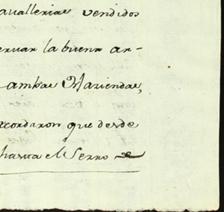 avallerias vendidos
ervar la buena ar-
ambas Haziendas,
acordaron que desde
hasta el Serro